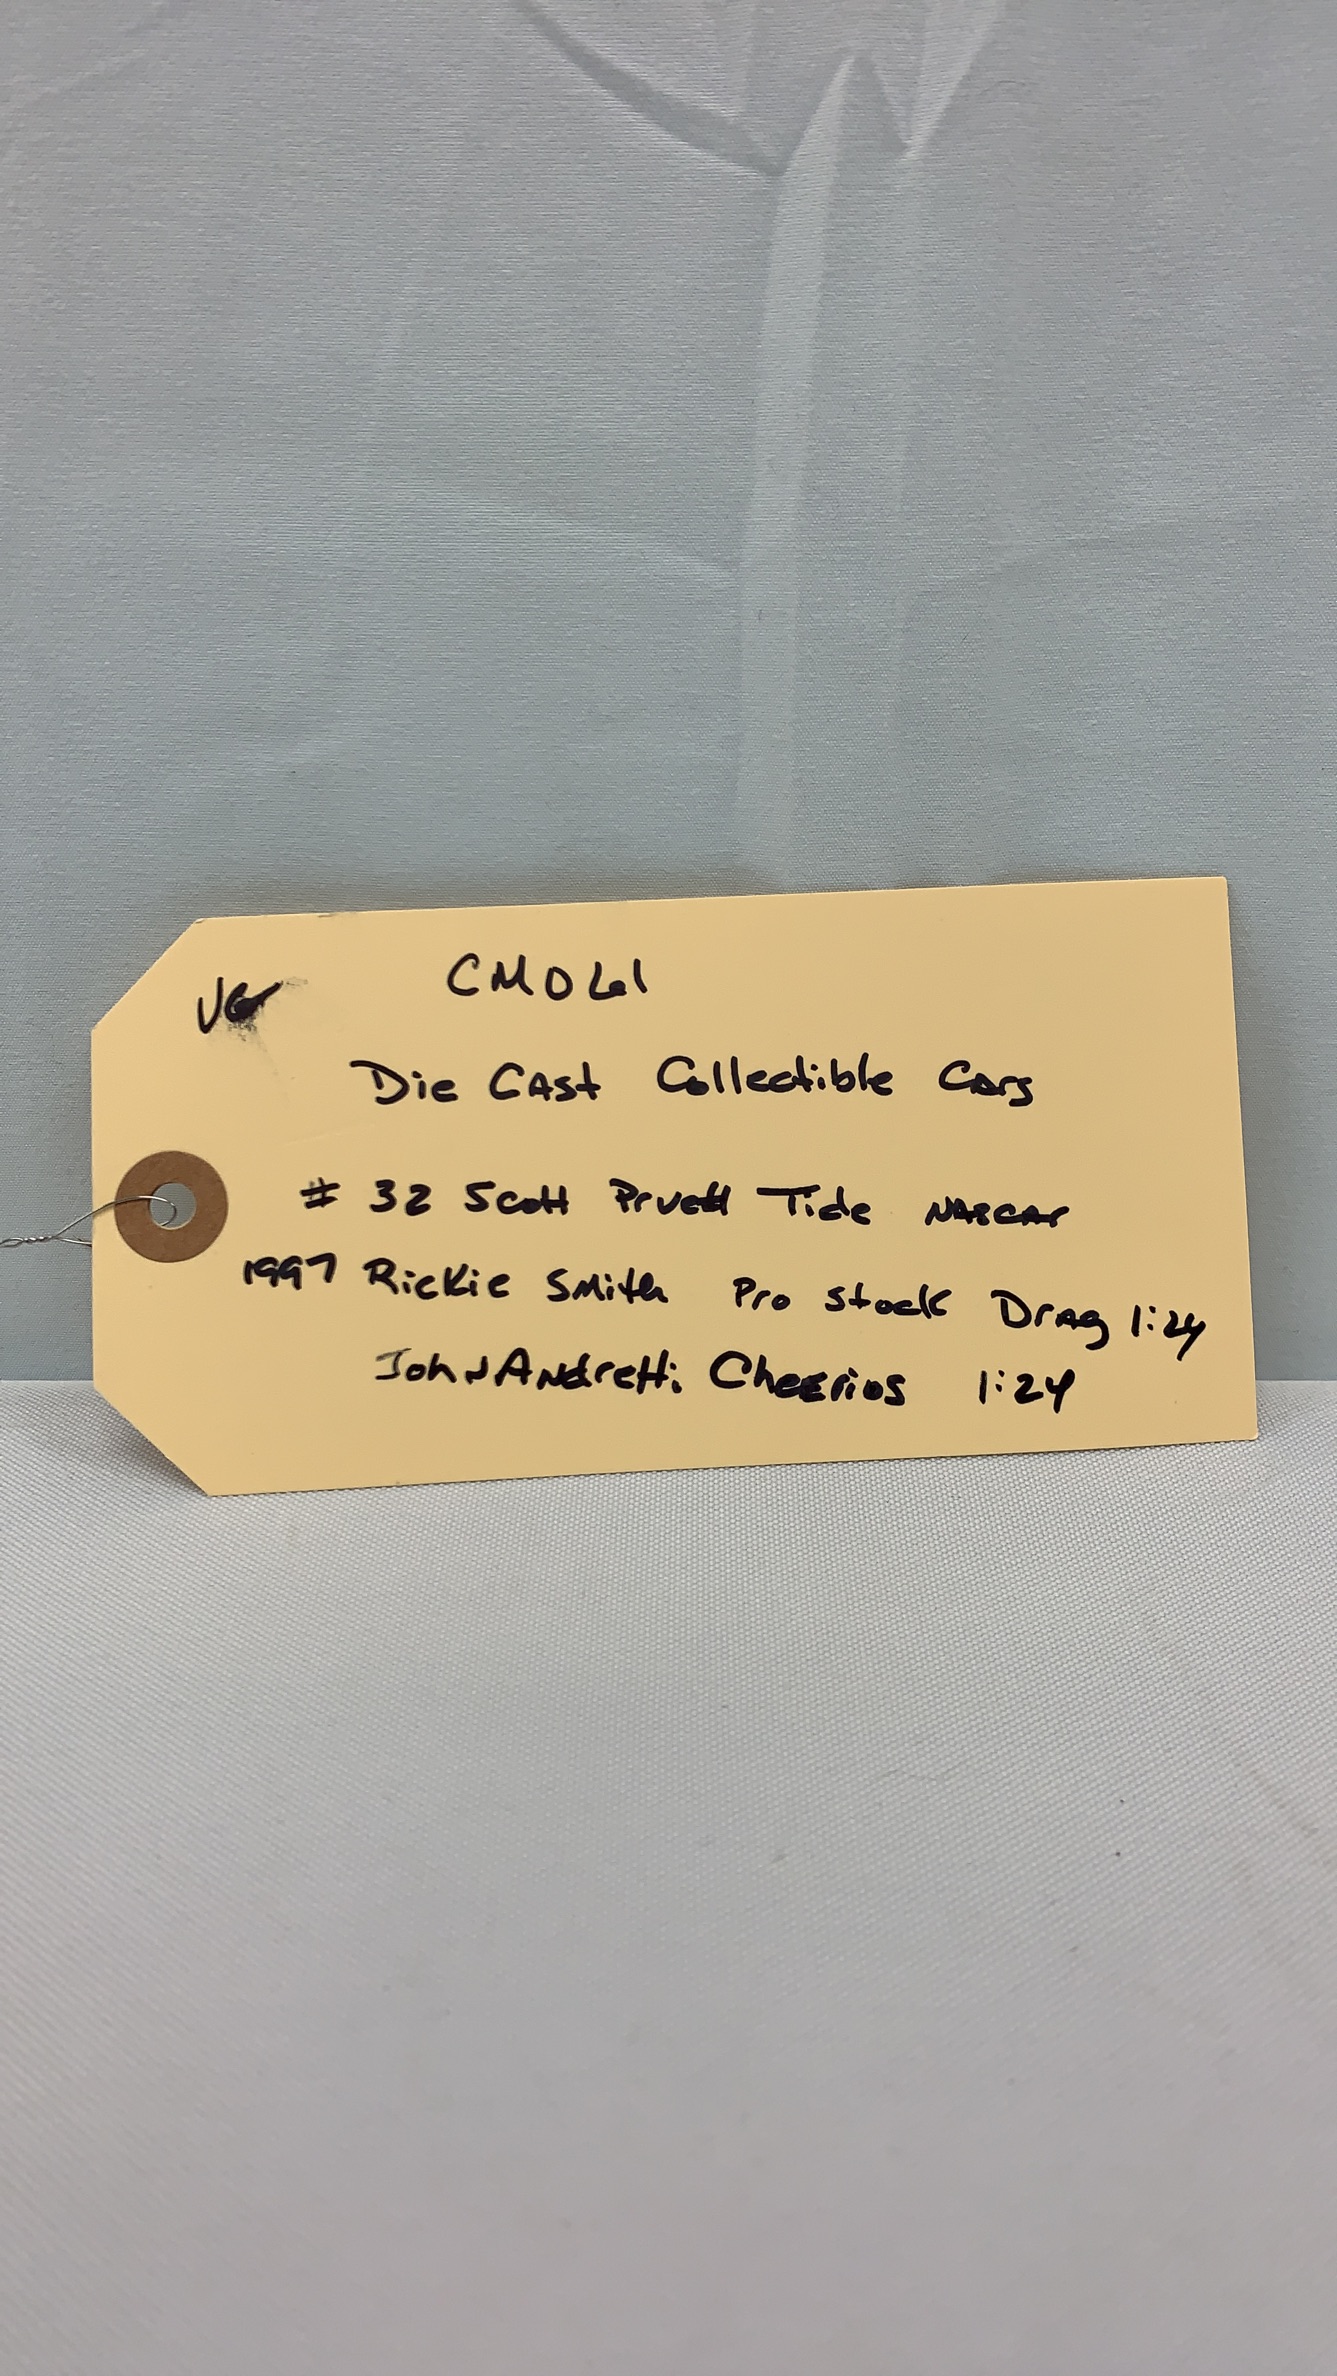 VG CM061
Die Cast Collectible Cars
# 32 Scott Pruett Tide NASCAR
1997 Rickie Smith Pro Stock Drag 1:24
John Andretti Cheerios 1:24